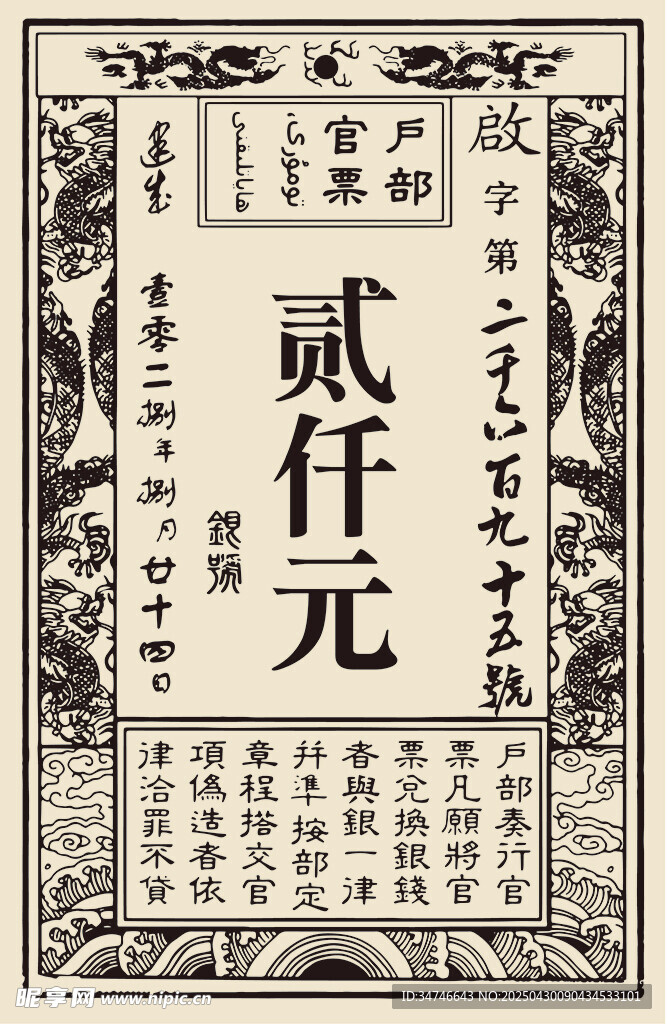 戶部
官票
啟字第二千六百九十五號
贰仟元
銀號
壹零二捌年捌月廿十四日
戶部奏行官
票凡願將官
票兌換銀錢
者與銀一律
幷準按部定
章程搭交官
項偽造者依
律治罪不貸
昵享网 www.nipic.cn
ID:34746643 NO:20250430090434533101